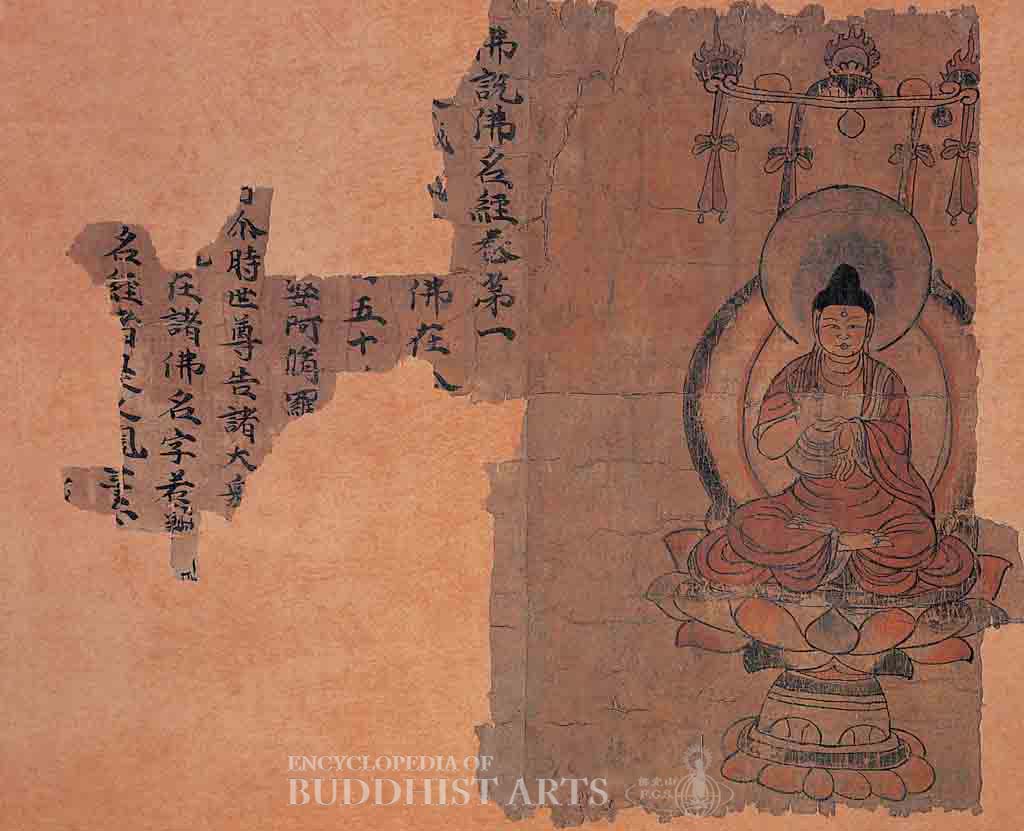 佛說佛名經卷第一
佛在
五十
婆阿脩羅
尒時世尊告諸大
在諸佛名字若
名經者
ENCYCLOPEDIA OF
BUDDHIST ARTS
佛光山
F.G.S.